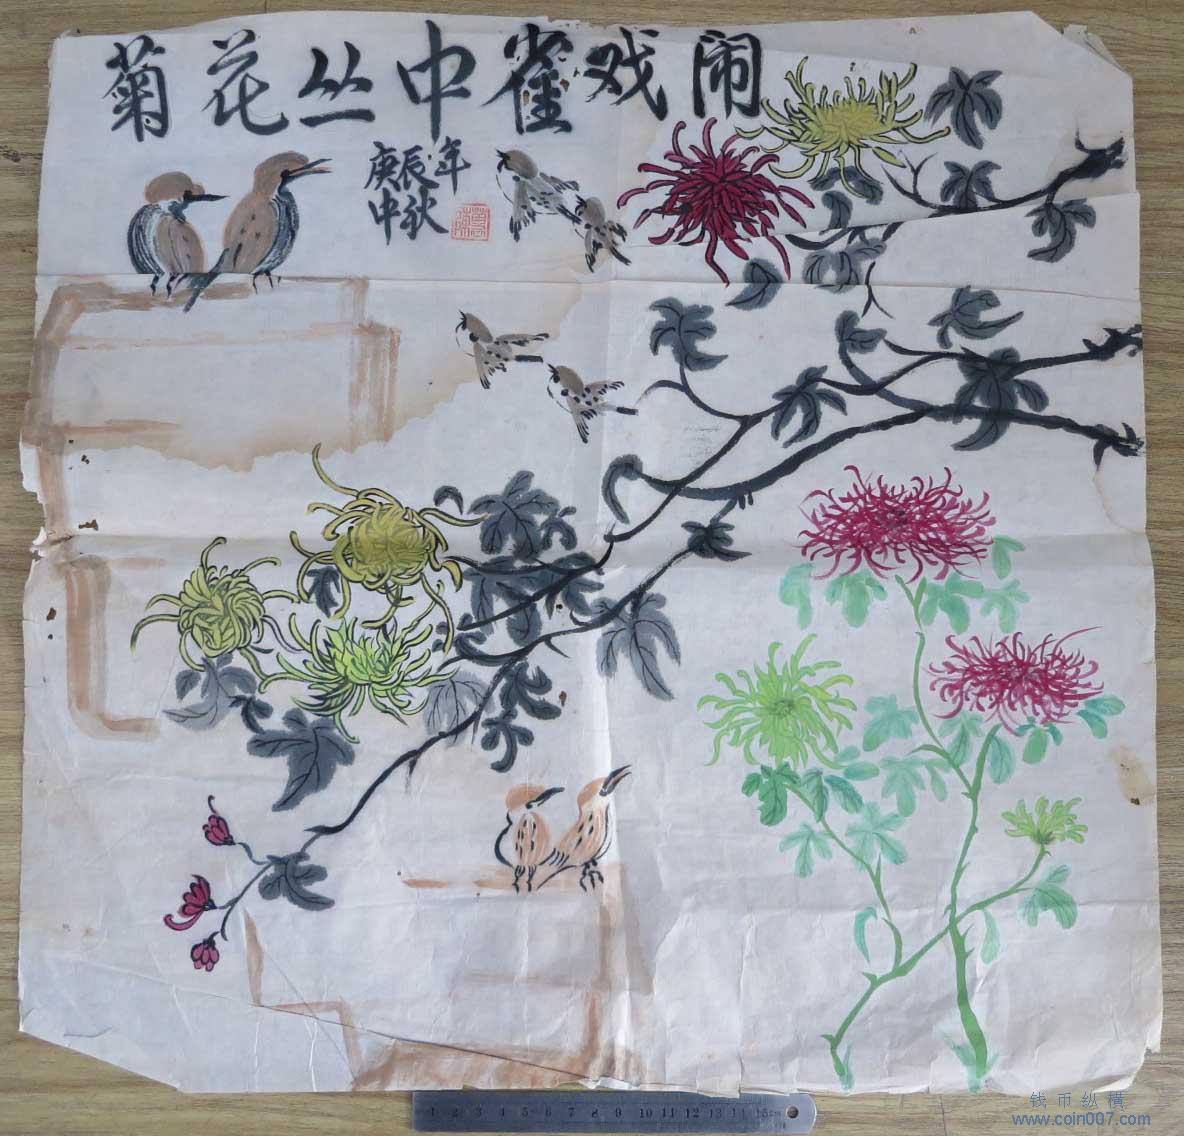 菊花丛中雀戏闹
庚辰年
中秋
1 2 3 4 5 6 7 8 9 10 11 12 13 14 15cm
钱币纵横
www.coin007.com